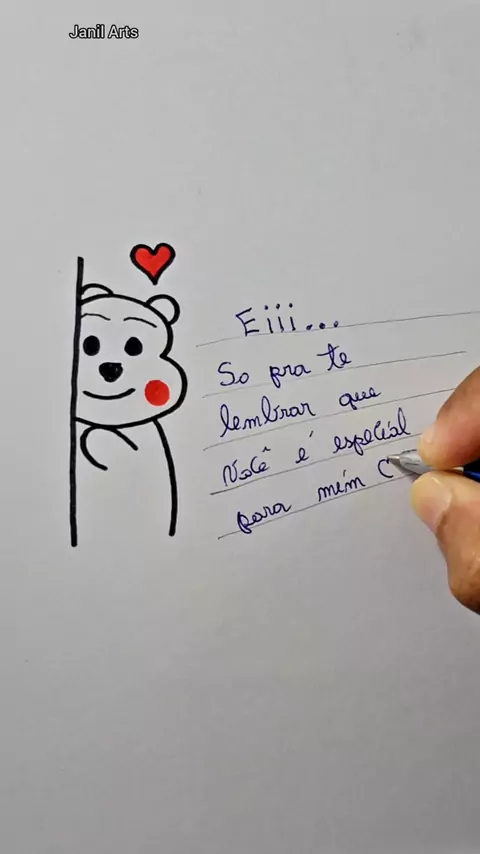 Janil Arts
Eiii...
So pra te
lembrar que
você é especial
para mim